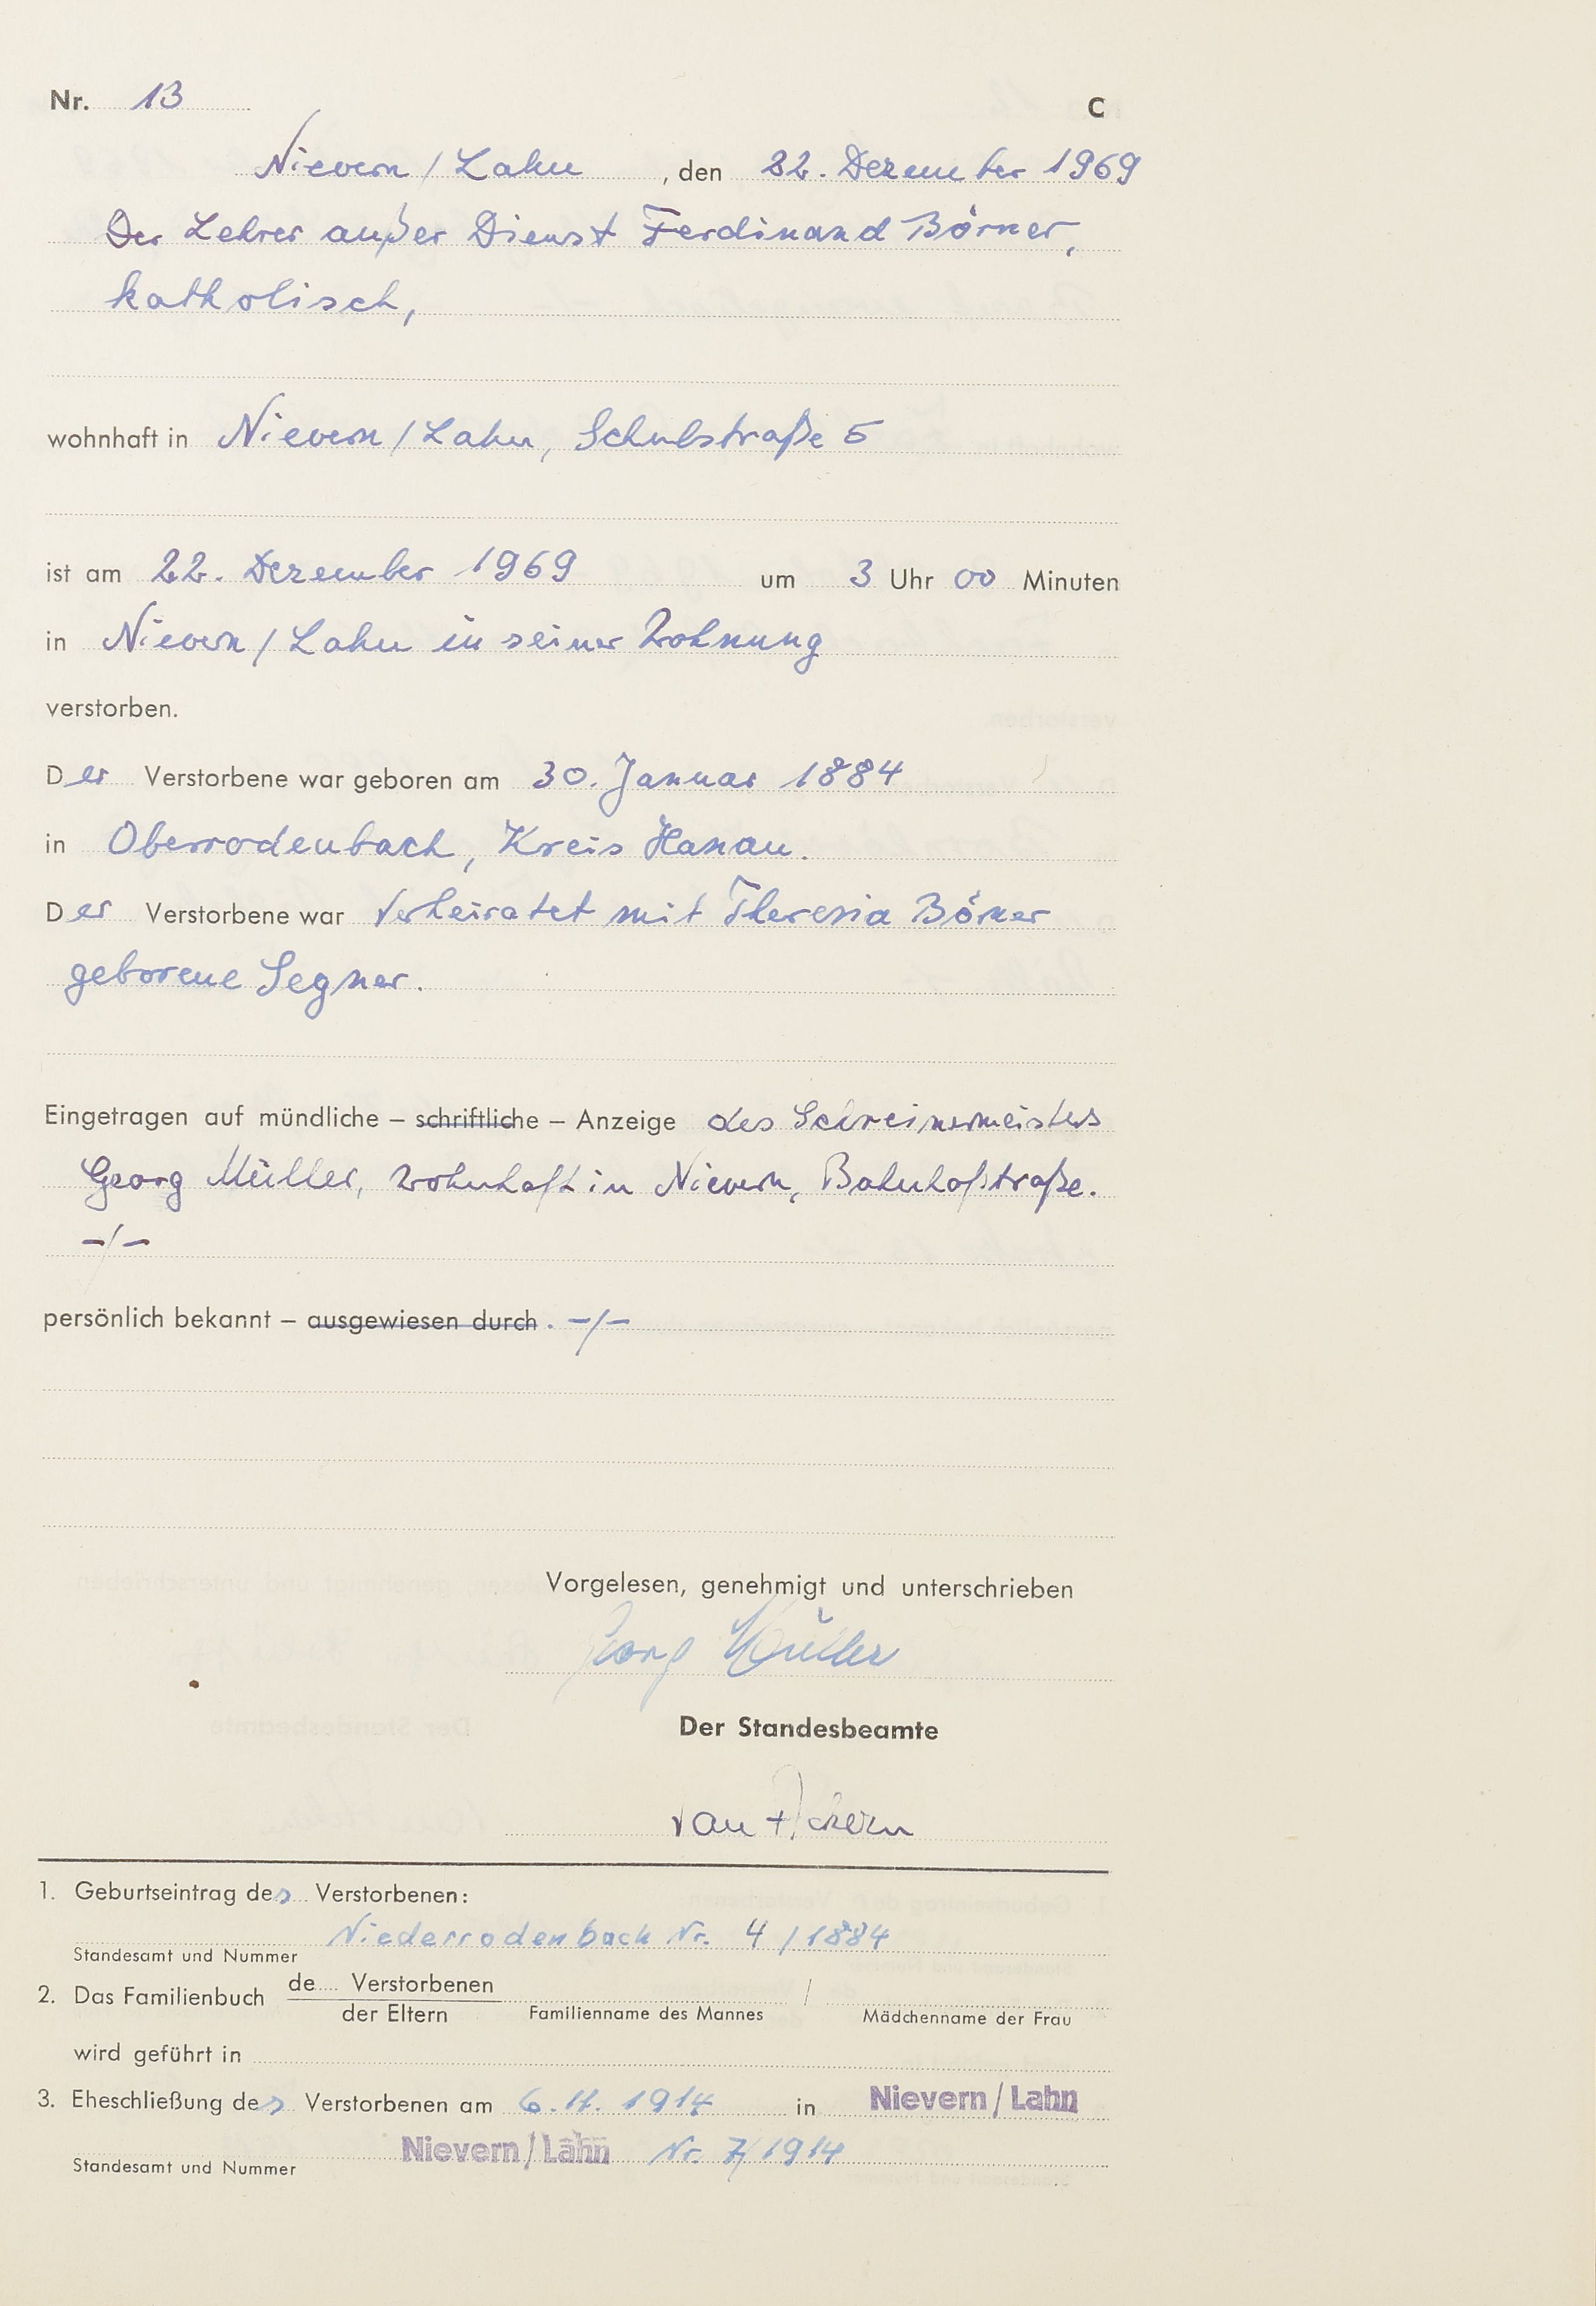 Nr. 13 C
Nievern / Lahn , den 22. Dezember 1969
Der Lehrer außer Dienst Ferdinand Börner,
katholisch,
wohnhaft in Nievern / Lahn, Schulstraße 5
ist am 22. Dezember 1969 um 3 Uhr 00 Minuten
in Nievern / Lahn in seiner Wohnung
verstorben.
Der Verstorbene war geboren am 30. Januar 1884
in Oberrodenbach, Kreis Hanau.
Der Verstorbene war verheiratet mit Theresia Börner
geborene Segner.
Eingetragen auf mündliche – schriftliche – Anzeige des Schreinermeisters
Georg Müller, wohnhaft in Nievern, Bahnhofstraße.
-/-
persönlich bekannt – ausgewiesen durch . -/-
Vorgelesen, genehmigt und unterschrieben
Georg Müller
Der Standesbeamte
van Ackern
1. Geburtseintrag des Verstorbenen:
Niederrodenbach Nr. 4 / 1884
Standesamt und Nummer
2. Das Familienbuch de Verstorbenen /
der Eltern Familienname des Mannes Mädchenname der Frau
wird geführt in
3. Eheschließung des Verstorbenen am 6. 11. 1914 in Nievern / Lahn
Nievern / Lahn Nr. 7/1914
Standesamt und Nummer